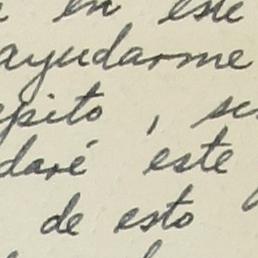 en este
ayudarme
pito, 
daré este
de esto